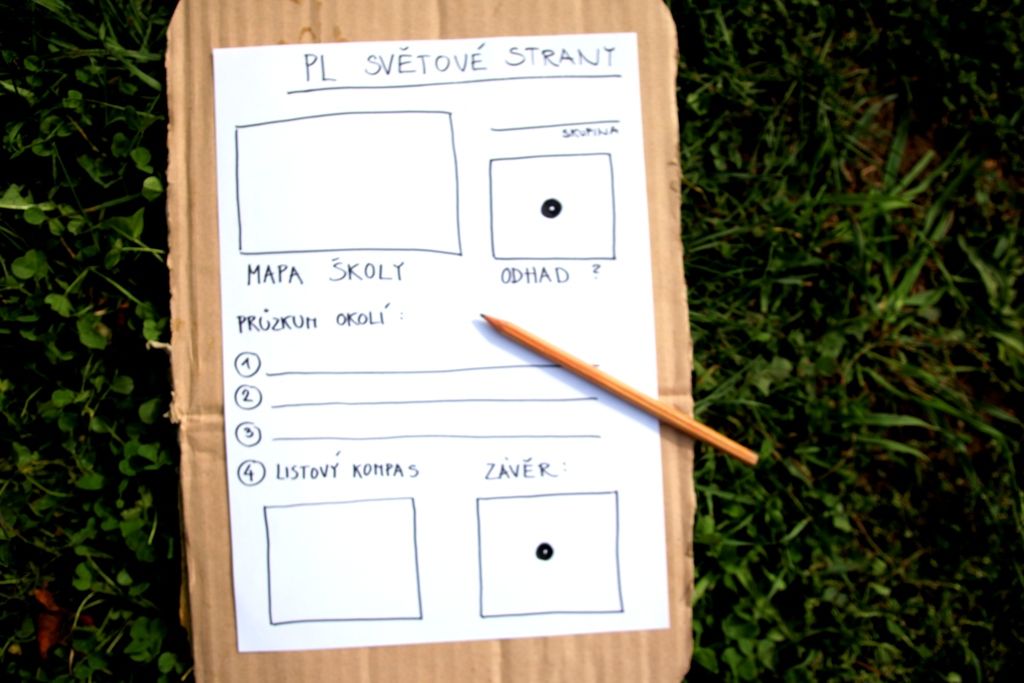 PL SVĚTOVÉ STRANY
SKUPINA
MAPA ŠKOLY
ODHAD ?
PRŮZKUM OKOLÍ:
1
2
3
4 LISTOVÝ KOMPAS
ZÁVĚR: